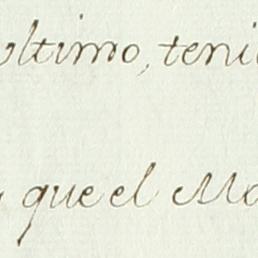 ultimo, teni
que el Mo